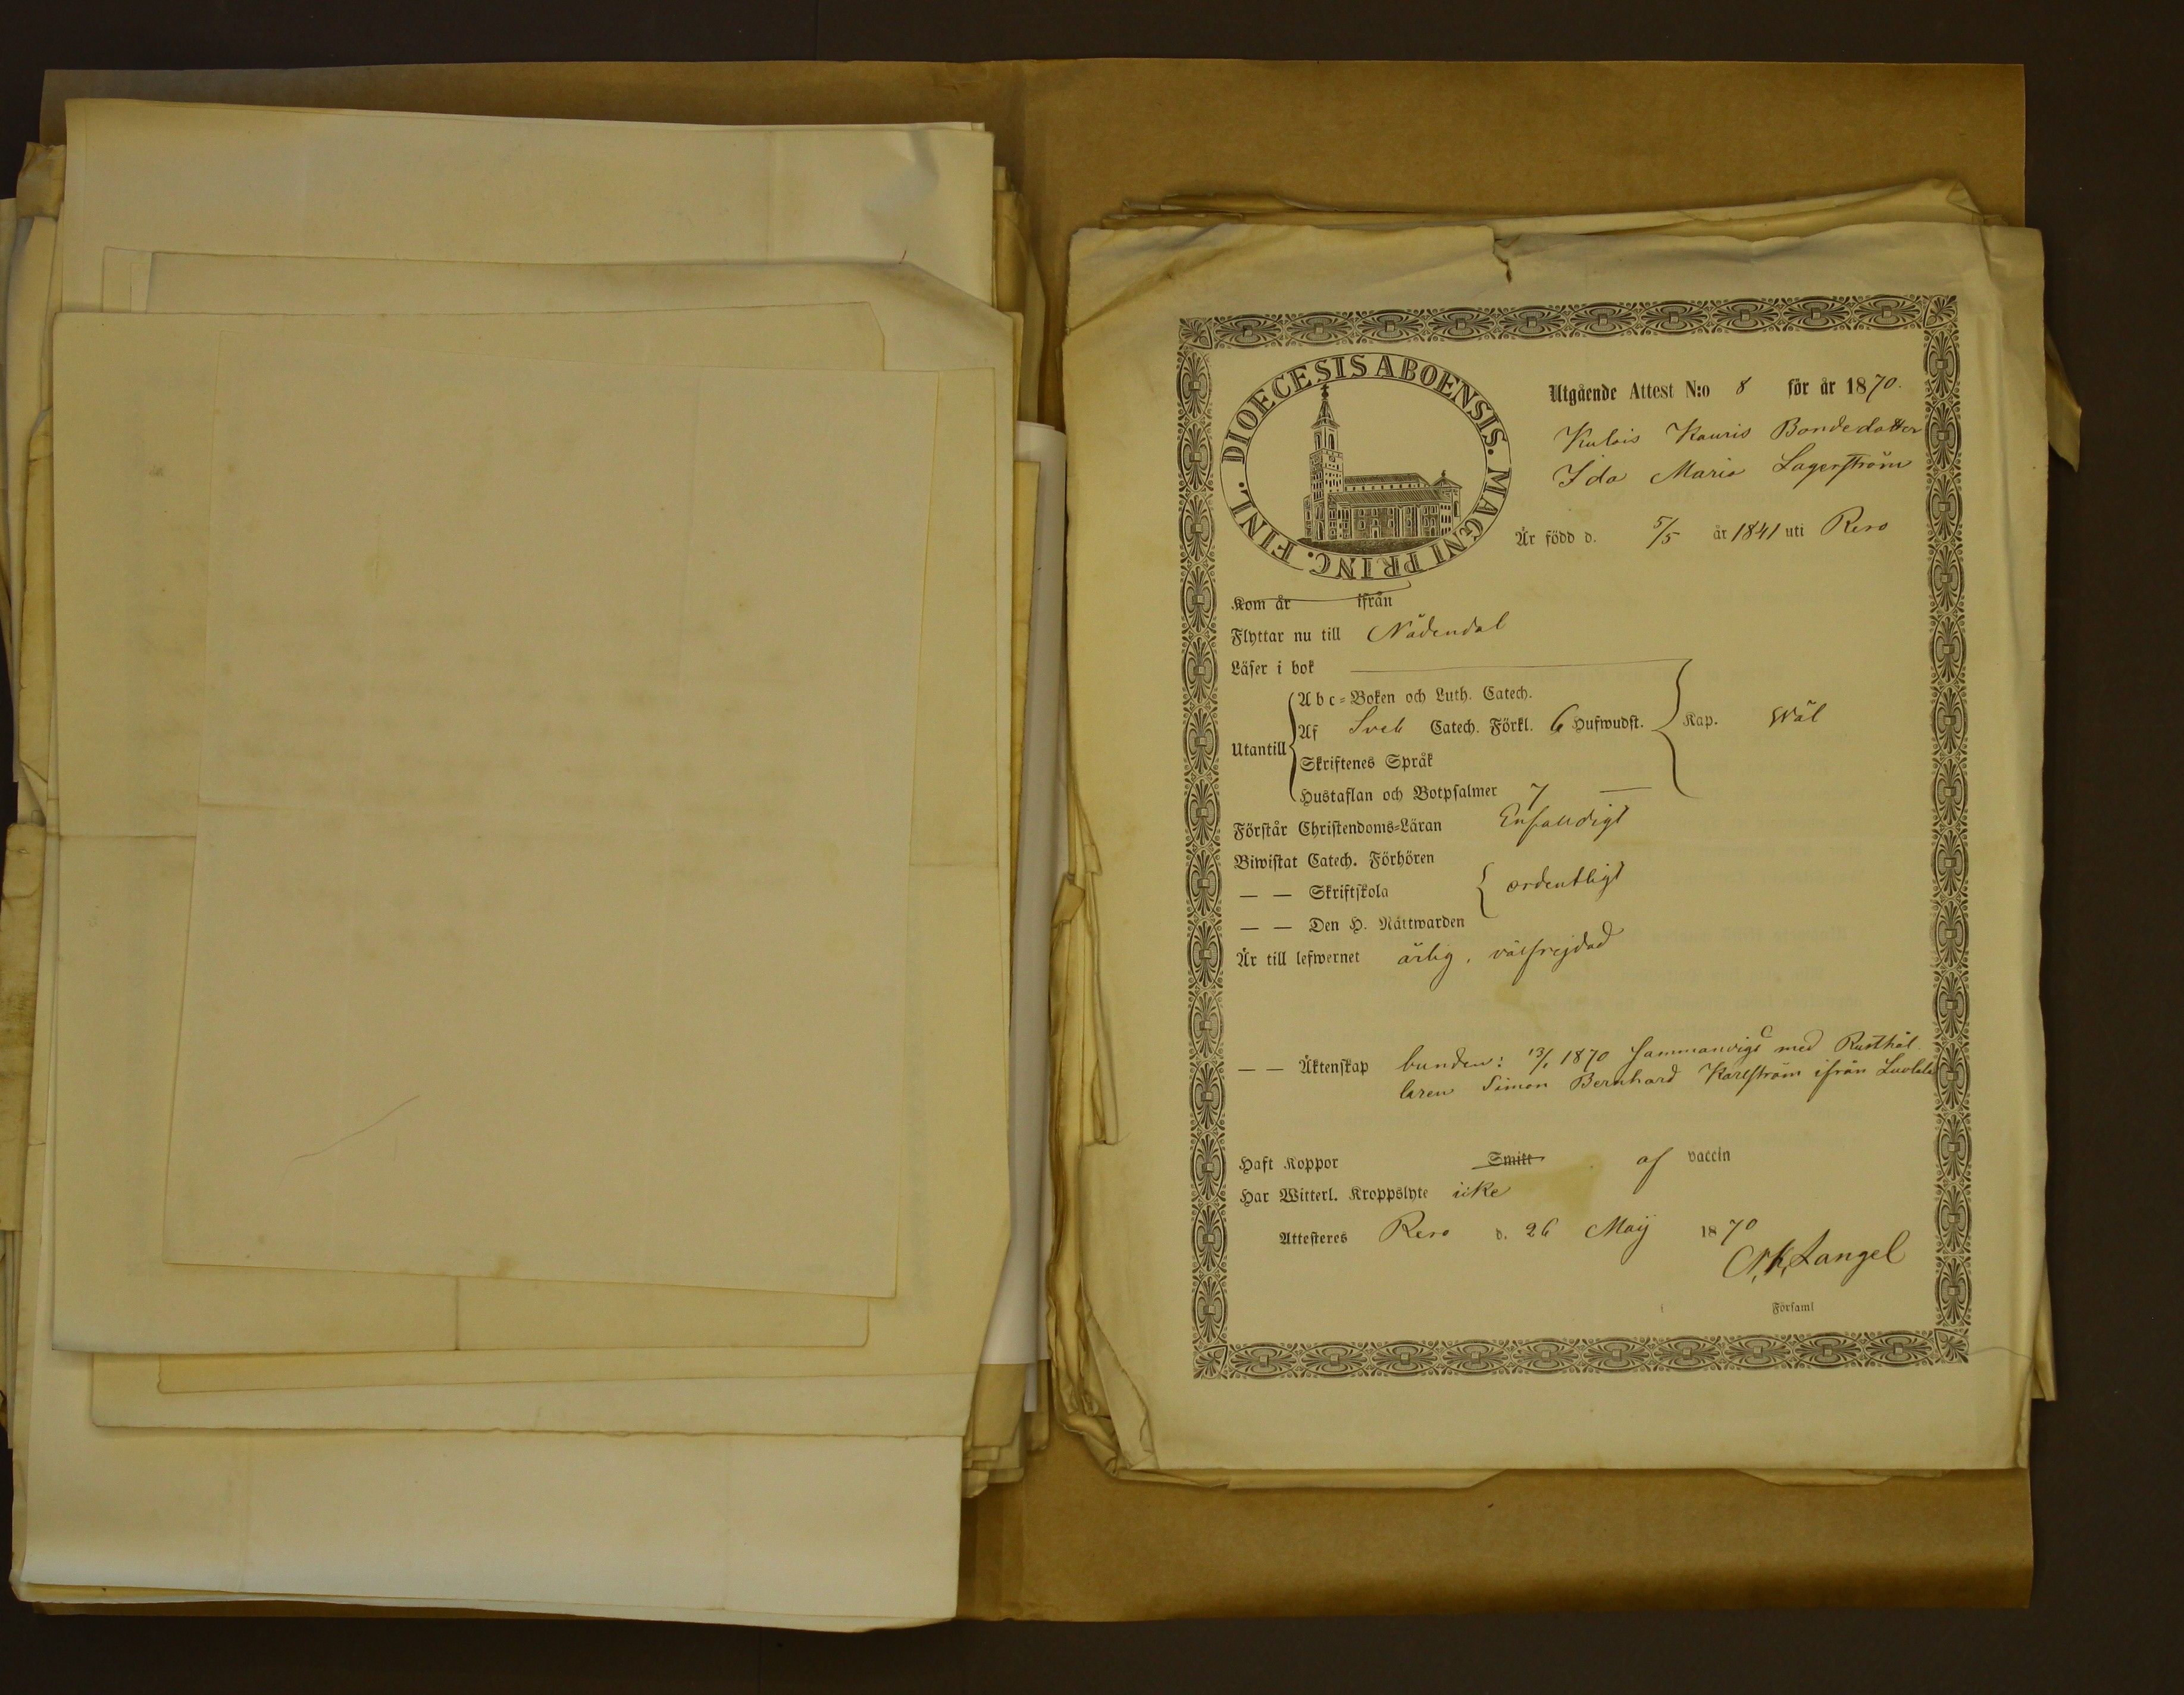 DIOECESIS ABOENSIS. MAGNI PRINC. FINL.
Utgående Attest N:o 8 för år 1870.
Kulois Kauris Bondedotter
Ida Maria Lagerström
Är född d. 5/5 år 1841 uti Reso
Kom år ifrån
Flyttar nu till Nådendal
Läser i bok
Abc=Boken och Luth. Catech.
Utantill Af Sveb Catech. Förkl. 6 Hufwudst. Kap. Wäl
Skriftenes Språk
Hustaflan och Botpsalmer 7 —
Förstår Christendoms=Läran Enfalldigt
Biwistat Catech. Förhören
— — Skriftskola ordentligt
— — Den H. Nattwarden
Är till lefwernet ärlig, välfrejdad
— — Äktenskap bunden: 13/1 1870 sammanvigd med Rusthål
laren Simon Bernhard Karlström ifrån Luolala
Haft Koppor Smitt af vaccin
Har Witterl. Kroppslyte icke
Attesteres Reso d. 26 Maij 1870
Langel
i Församl